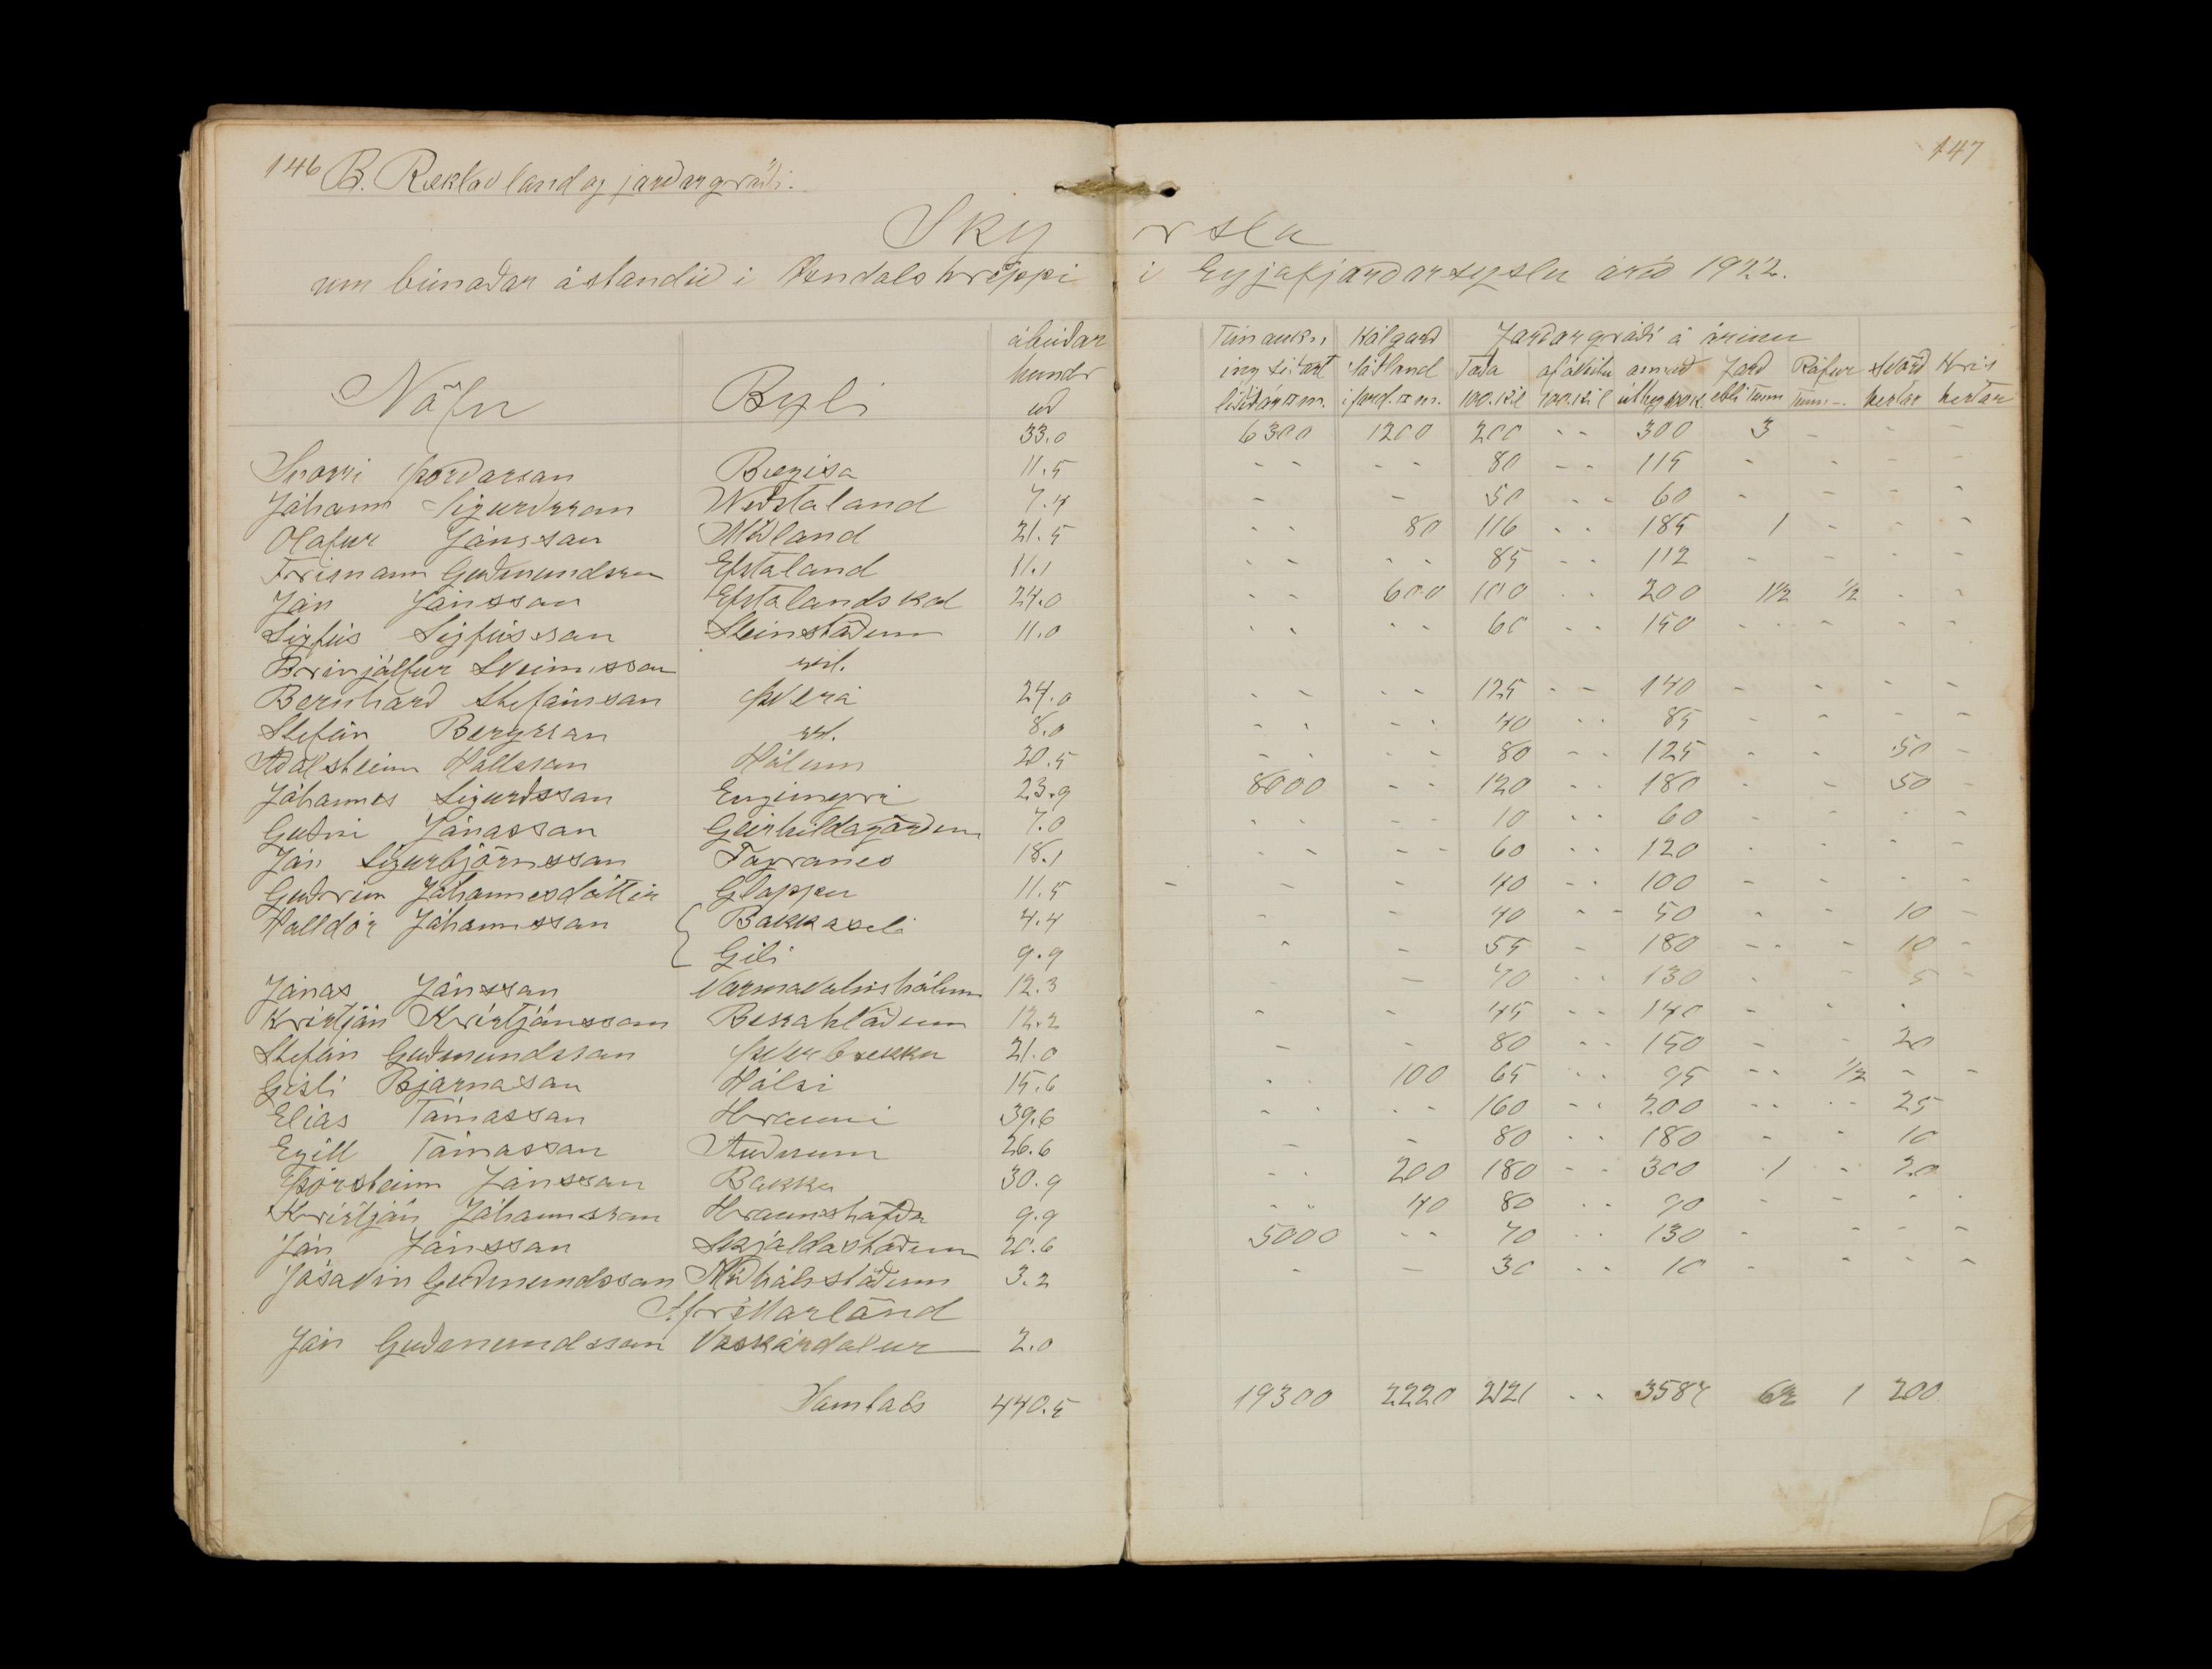 146 B. Ræktað land og jarðargróði. 147
Skýrsla
um búnaðar ástandið i Öxndalshreppi i Eyjafjarðarsyslu árið 1922.
ábúðar Túnauka, Kálgarð Jarðargróði á árinu
hundr ing síðast sátland Taða annað Jarð Rófur Svörð Hrís
Nöfn Býli uð liðið ár □ m. i jarð. □ m. 100.kil 100.kil úthey 100 k. epli Tunn Tunn - hestar hestar
33.0 6300 1200 200 - - 300 3 - - -
Snorri Þorðarson Bægisa 11.5 - - - - 80 - - 115 - - - -
Jóhann Sigurðsson Neðstaland 7.4 - - 50 - - 60 - - - -
Olafur Jónsson Miðland 21.5 - - 80 116 - - 185 1 - - -
Frímann Guðmundsson Efstaland 11.1 - - - - 85 - - 112 - - - -
Jón Jónsson Efstalandskot 24.0 - - 600 100 - - 200 1½ ½ - -
Sigfús Sigfússon Steinstöðum 11.0 - - - - 60 - - 150 - - - - -
Brinjólfur Sveinsson
Bernharð Stefánsson Þverá 24.0 - - - - 125 - - 140 - - - -
Stefán Bergsson 8.0 - - - - 40 - - 85 - - - -
Aðalsteinn Hallsson Hólum 20.5 - - - - 80 - - 125 - - 50 -
Jóhannes Sigurðsson Engimyri 23.9 8000 - - 120 - - 180 - - 50 -
Guðni Jónasson Geirhildagörðum 7.0 - - - - 10 - - 60 - - - -
Jón Sigurbjörnsson Fagranes 18.1 - - - - 60 - - 120 - - - -
Guðrún Jóhannesdóttir Gloppu 11.5 - - - 40 - - 100 - - - -
Halldór Jóhannsson { Bakkaseli 4.4 - - 40 - - 50 - - 10 -
Gili 9.9 - - 55 - 180 - - - 10 -
Jónas Jónsson Varmavatnshólum 12.3 - - 70 - - 130 - - 5 -
Kristján Kristjánsson Beskahlöðum 12.2 - - 45 - - 140 - - -
Stefán Guðmundsson Þverbrekku 21.0 - - 80 - - 150 - - 20
Gísli Bjarnason Hálsi 15.6 - - 100 65 - - 95 - - ½ - -
Elias Tómasson Hrauni 39.6 - - - - 160 - - 200 - - - - 25
Egill Tómasson Auðnum 26.6 - - 80 - - 180 - - 10
Þórsteinn Jónsson Bakka 30.9 - - 200 180 - - 300 1 - 20
Kristján Jóhannsson Hraunshöfða 9.9 - - 40 80 - - 90 - - - -
Jón Jónsson Skjaldastöðum 20.6 5000 - - 70 - - 130 - - - -
Jósavin Guðmundsson Miðhálsstöðum 3.2 - - 30 - - 10 - - - -
Afréttarlönd
Jón Guðmundsson Vaskárdalur 2.0
Samtals 440.5 19300 2220 2121 - - 3587 6½ 1 200